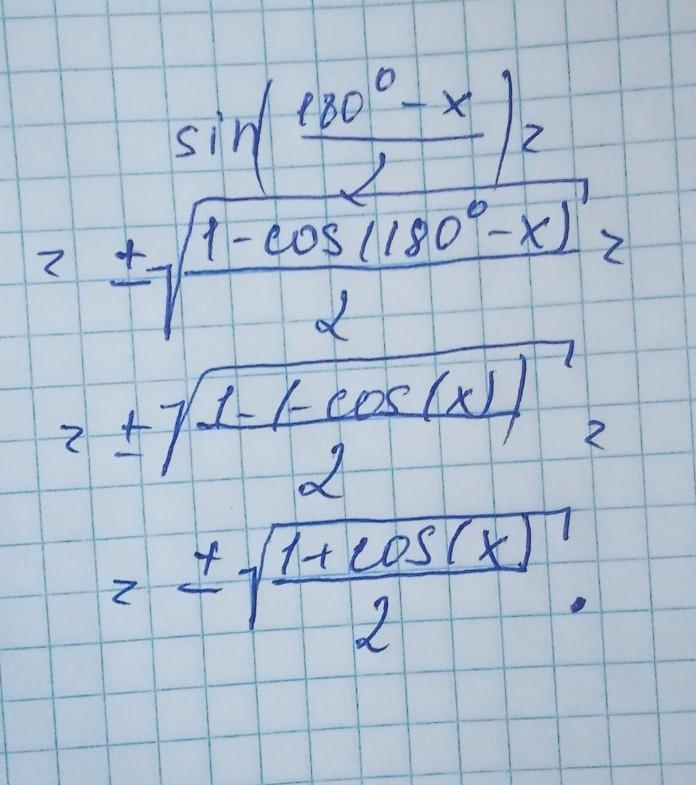 sin((180° - x)/2) =
= ±√((1 - cos(180° - x))/2) =
= ±√((1 - (-cos(x)))/2) =
= ±√((1 + cos(x))/2).